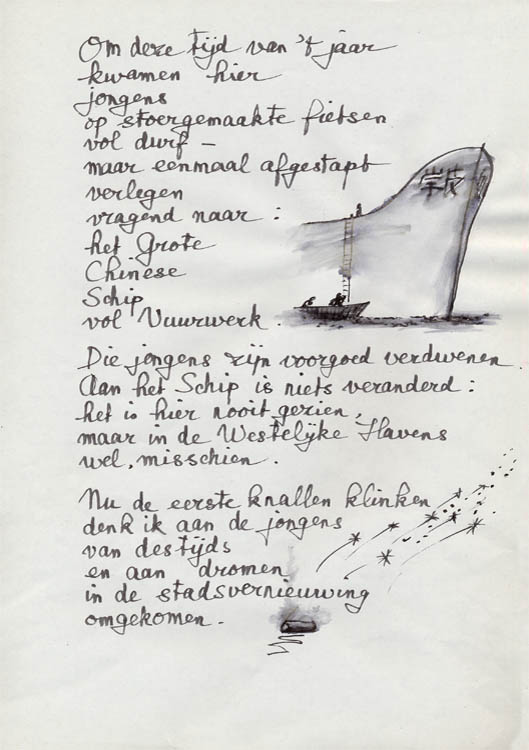 Om deze tijd van 't jaar
kwamen hier
jongens
op stoergemaakte fietsen
vol durf –
maar eenmaal afgestapt
verlegen
vragend naar :
het Grote
Chinese
Schip
vol Vuurwerk.
Die jongens zijn voorgoed verdwenen
Aan het Schip is niets veranderd :
het is hier nooit gezien,
maar in de Westelijke Havens
wel, misschien.
Nu de eerste knallen klinken
denk ik aan de jongens
van destijds
en aan dromen
in de stadsvernieuwing
omgekomen.